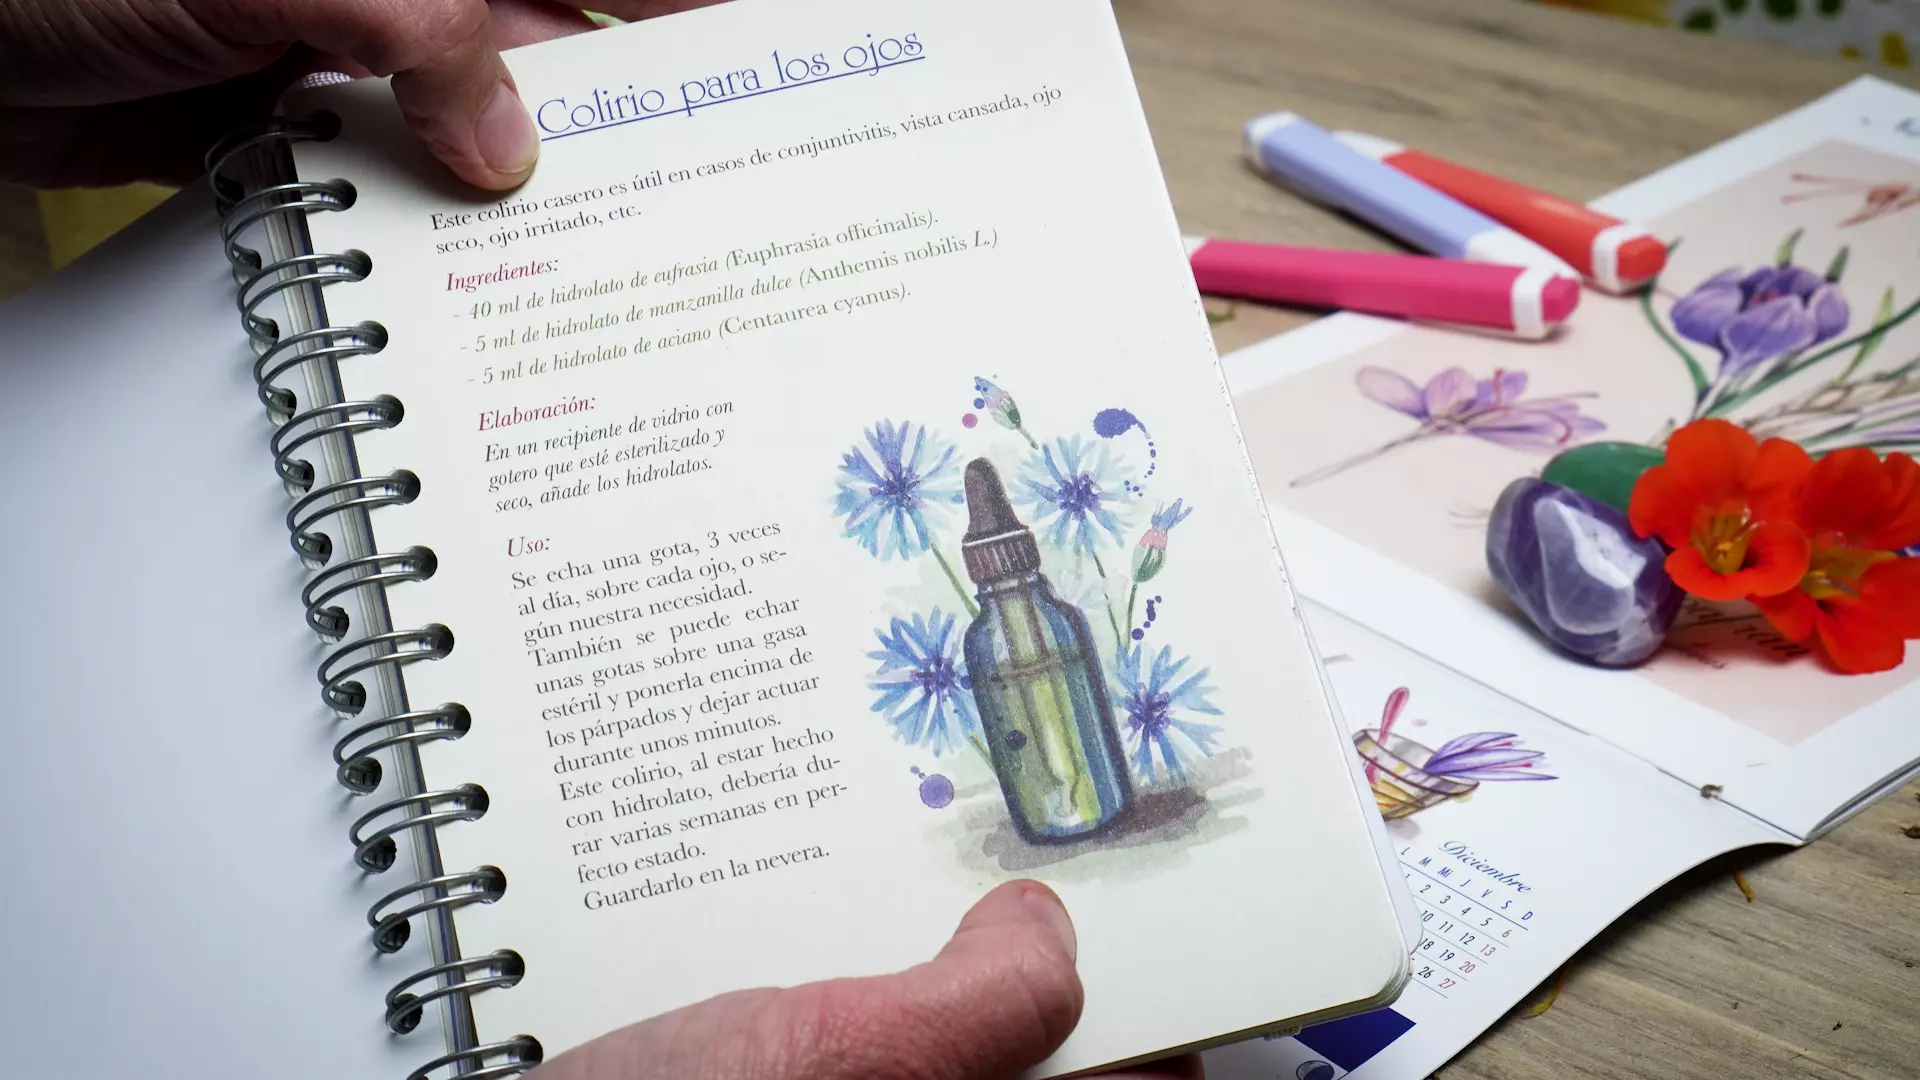 Colirio para los ojos
Este colirio casero es útil en casos de conjuntivitis, vista cansada, ojo
seco, ojo irritado, etc.
Ingredientes:
- 40 ml de hidrolato de eufrasia (Euphrasia officinalis).
- 5 ml de hidrolato de manzanilla dulce (Anthemis nobilis L.)
- 5 ml de hidrolato de aciano (Centaurea cyanus).
Elaboración:
En un recipiente de vidrio con
gotero que esté esterilizado y
seco, añade los hidrolatos.
Uso:
Se echa una gota, 3 veces
al día, sobre cada ojo, o se-
gún nuestra necesidad.
También se puede echar
unas gotas sobre una gasa
estéril y ponerla encima de
los párpados y dejar actuar
durante unos minutos.
Este colirio, al estar hecho
con hidrolato, debería du-
rar varias semanas en per-
fecto estado.
Guardarlo en la nevera.
Diciembre
L M Mi J V S D
1 2 3 4 5 6
10 11 12 13
18 19 20
26 27